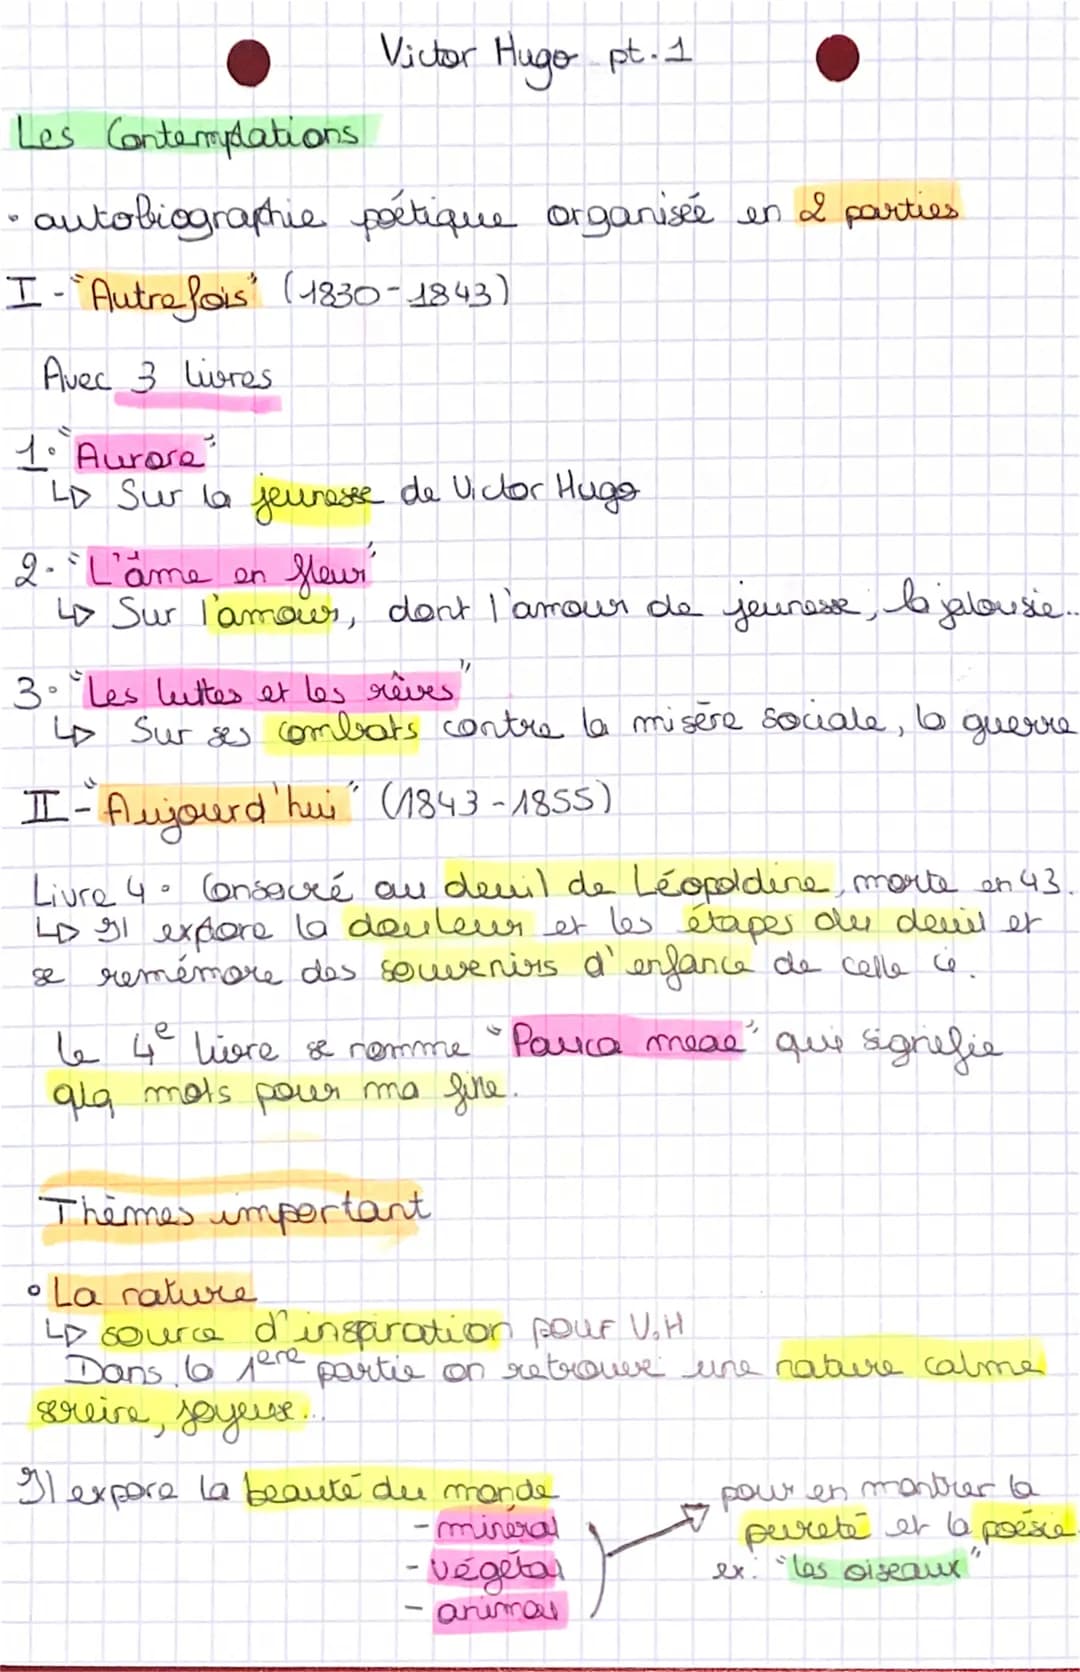 Victor Hugo pt.1
Les Contemplations
• autobiographie poétique organisée en 2 parties
I - "Autrefois" (1830-1843)
Avec 3 livres
1. "Aurore"
↳ Sur la jeunesse de Victor Hugo
2. "L'âme en fleur"
↳ Sur l'amour, dont l'amour de jeunesse, la jalousie..
3. "Les luttes et les rêves"
↳ Sur ses combats contre la misère sociale, la guerre
II - "Aujourd'hui" (1843-1855)
Livre 4. Consacré au deuil de Léopoldine, morte en 43.
↳ Il expore la douleur et les étapes du deuil et
se remémore des souvenirs d'enfance de celle ci.
Le 4e livre se nomme "Pauca meae" qui signifie
qlq mots pour ma fille.
Thèmes important
• La nature
↳ source d'inspiration pour V.H
Dans la 1ère partie on retrouve une nature calme
sereine, joyeuse...
Il expore la beauté du monde
- minéral
- végétal
- animal
pour en montrer la
pureté et la poésie.
ex: "les oiseaux"